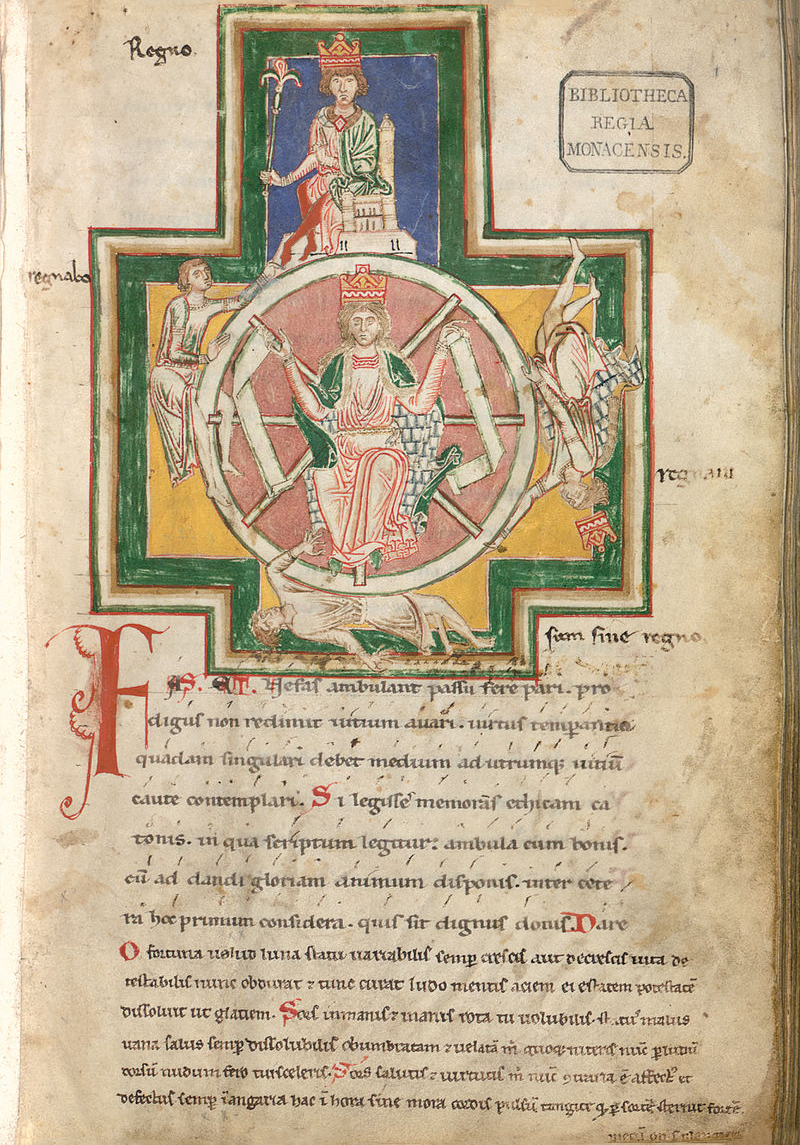 Regno
BIBLIOTHECA
REGIA
MONACENSIS.
regnabo
regnaui
sum sine regno
FAS. ET. Nefas ambulant passu fere pari. pro
digus non redimit uitium auari. uirtus temperantia
quadam singulari debet medium ad utrumq; uitiū
caute contemplari. Si legisse memoras ethicam ca
tonis. in qua scriptum legitur: ambula cum bonis.
cū ad dandi gloriam animum disponis. inter cete
ra hoc primum considera. quis sit dignus donis. Dare
O fortuna uelud luna statu uariabilis semp crescis aut decrescis uita de
testabilis nunc obdurat ⁊ tunc curat ludo mentis aciem egestatem potestatē
dissoluit ut glaciem. Sors inmanis ⁊ inanis rota tu uolubilis status malus
uana salus semp dissolubilis obumbratam ⁊ uelatā m quoq; niteris nūc p ludū
dorsū nudum fero tui sceleris. Sors salutis ⁊ uirtutis m nūc ɔtraria ē affect et
defectus semp ī angaria hac ī hora sine mora cordis pulsū tangite q̄ p sortē sternit fortē